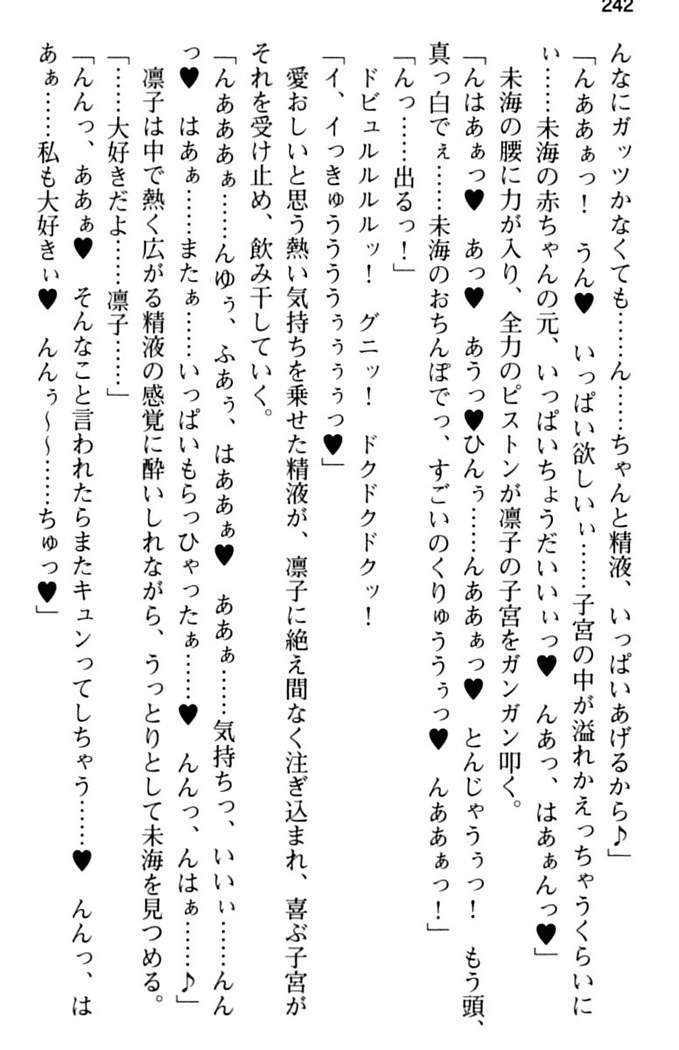 242
んなにガッツかなくても……ん……ちゃんと精液、いっぱいあげるから♪」
「んああぁっ！　うん♥　いっぱい欲しいぃ……子宮の中が溢れかえっちゃうくらいに
ぃ……未海の赤ちゃんの元、いっぱいちょうだいいぃっ♥　んあっ、はあぁんっ♥」
　未海の腰に力が入り、全力のピストンが凛子の子宮をガンガン叩く。
「んはあぁっ♥　あっ♥　あうっ♥ひんぅ……んああぁっ♥　とんじゃうぅっ！　もう頭、
真っ白でぇ……未海のおちんぽでっ、すごいのくりゅううぅっ♥　んああぁっ！」
「んっ……出るっ！」
　ドビュルルルルッ！　グニッ！　ドクドクドクッ！
「イ、イっきゅうううぅぅぅぅっ♥」
　愛おしいと思う熱い気持ちを乗せた精液が、凛子に絶え間なく注ぎ込まれ、喜ぶ子宮が
それを受け止め、飲み干していく。
「んあああぁ……んゆぅ、ふあぅ、はああぁ♥　ああぁ……気持ちっ、いいぃ……んん
っ♥　はあぁ……またぁ……いっぱいもらっひゃったぁ……♥　んんっ、んはぁ……♪」
　凛子は中で熱く広がる精液の感覚に酔いしれながら、うっとりとして未海を見つめる。
「……大好きだよ……凛子……」
「んんっ、ああぁ♥　そんなこと言われたらまたキュンってしちゃう……♥　んんっ、は
あぁ……私も大好きぃ♥　んんぅ～～……ちゅっ♥」